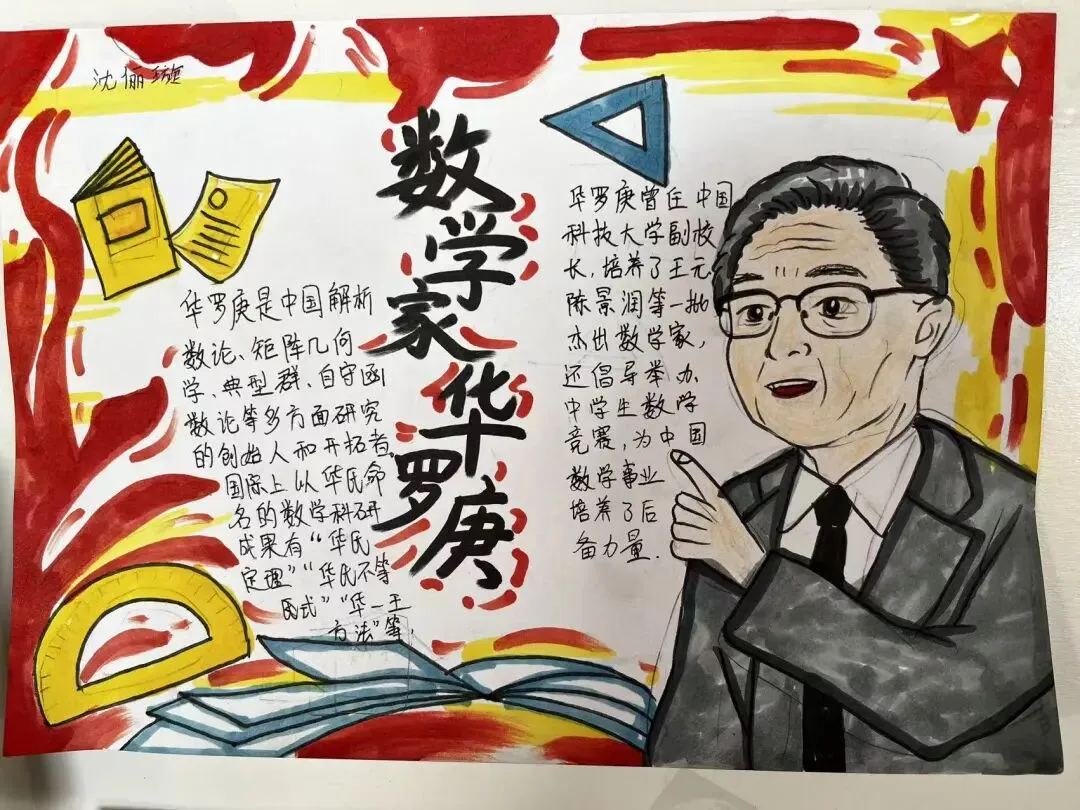 沈俪璇
数学家华罗庚
华罗庚是中国解析
数论、矩阵几何
学、典型群、自守函
数论等多方面研究
的创始人和开拓者.
国际上以华氏命
名的数学科研
成果有“华氏
定理”“华氏不等
式”“华一王
方法”等.
华罗庚曾任中国
科技大学副校
长,培养了王元、
陈景润等一批
杰出数学家,
还倡导举办
中学生数学
竞赛,为中国
数学事业
培养了后
备力量.